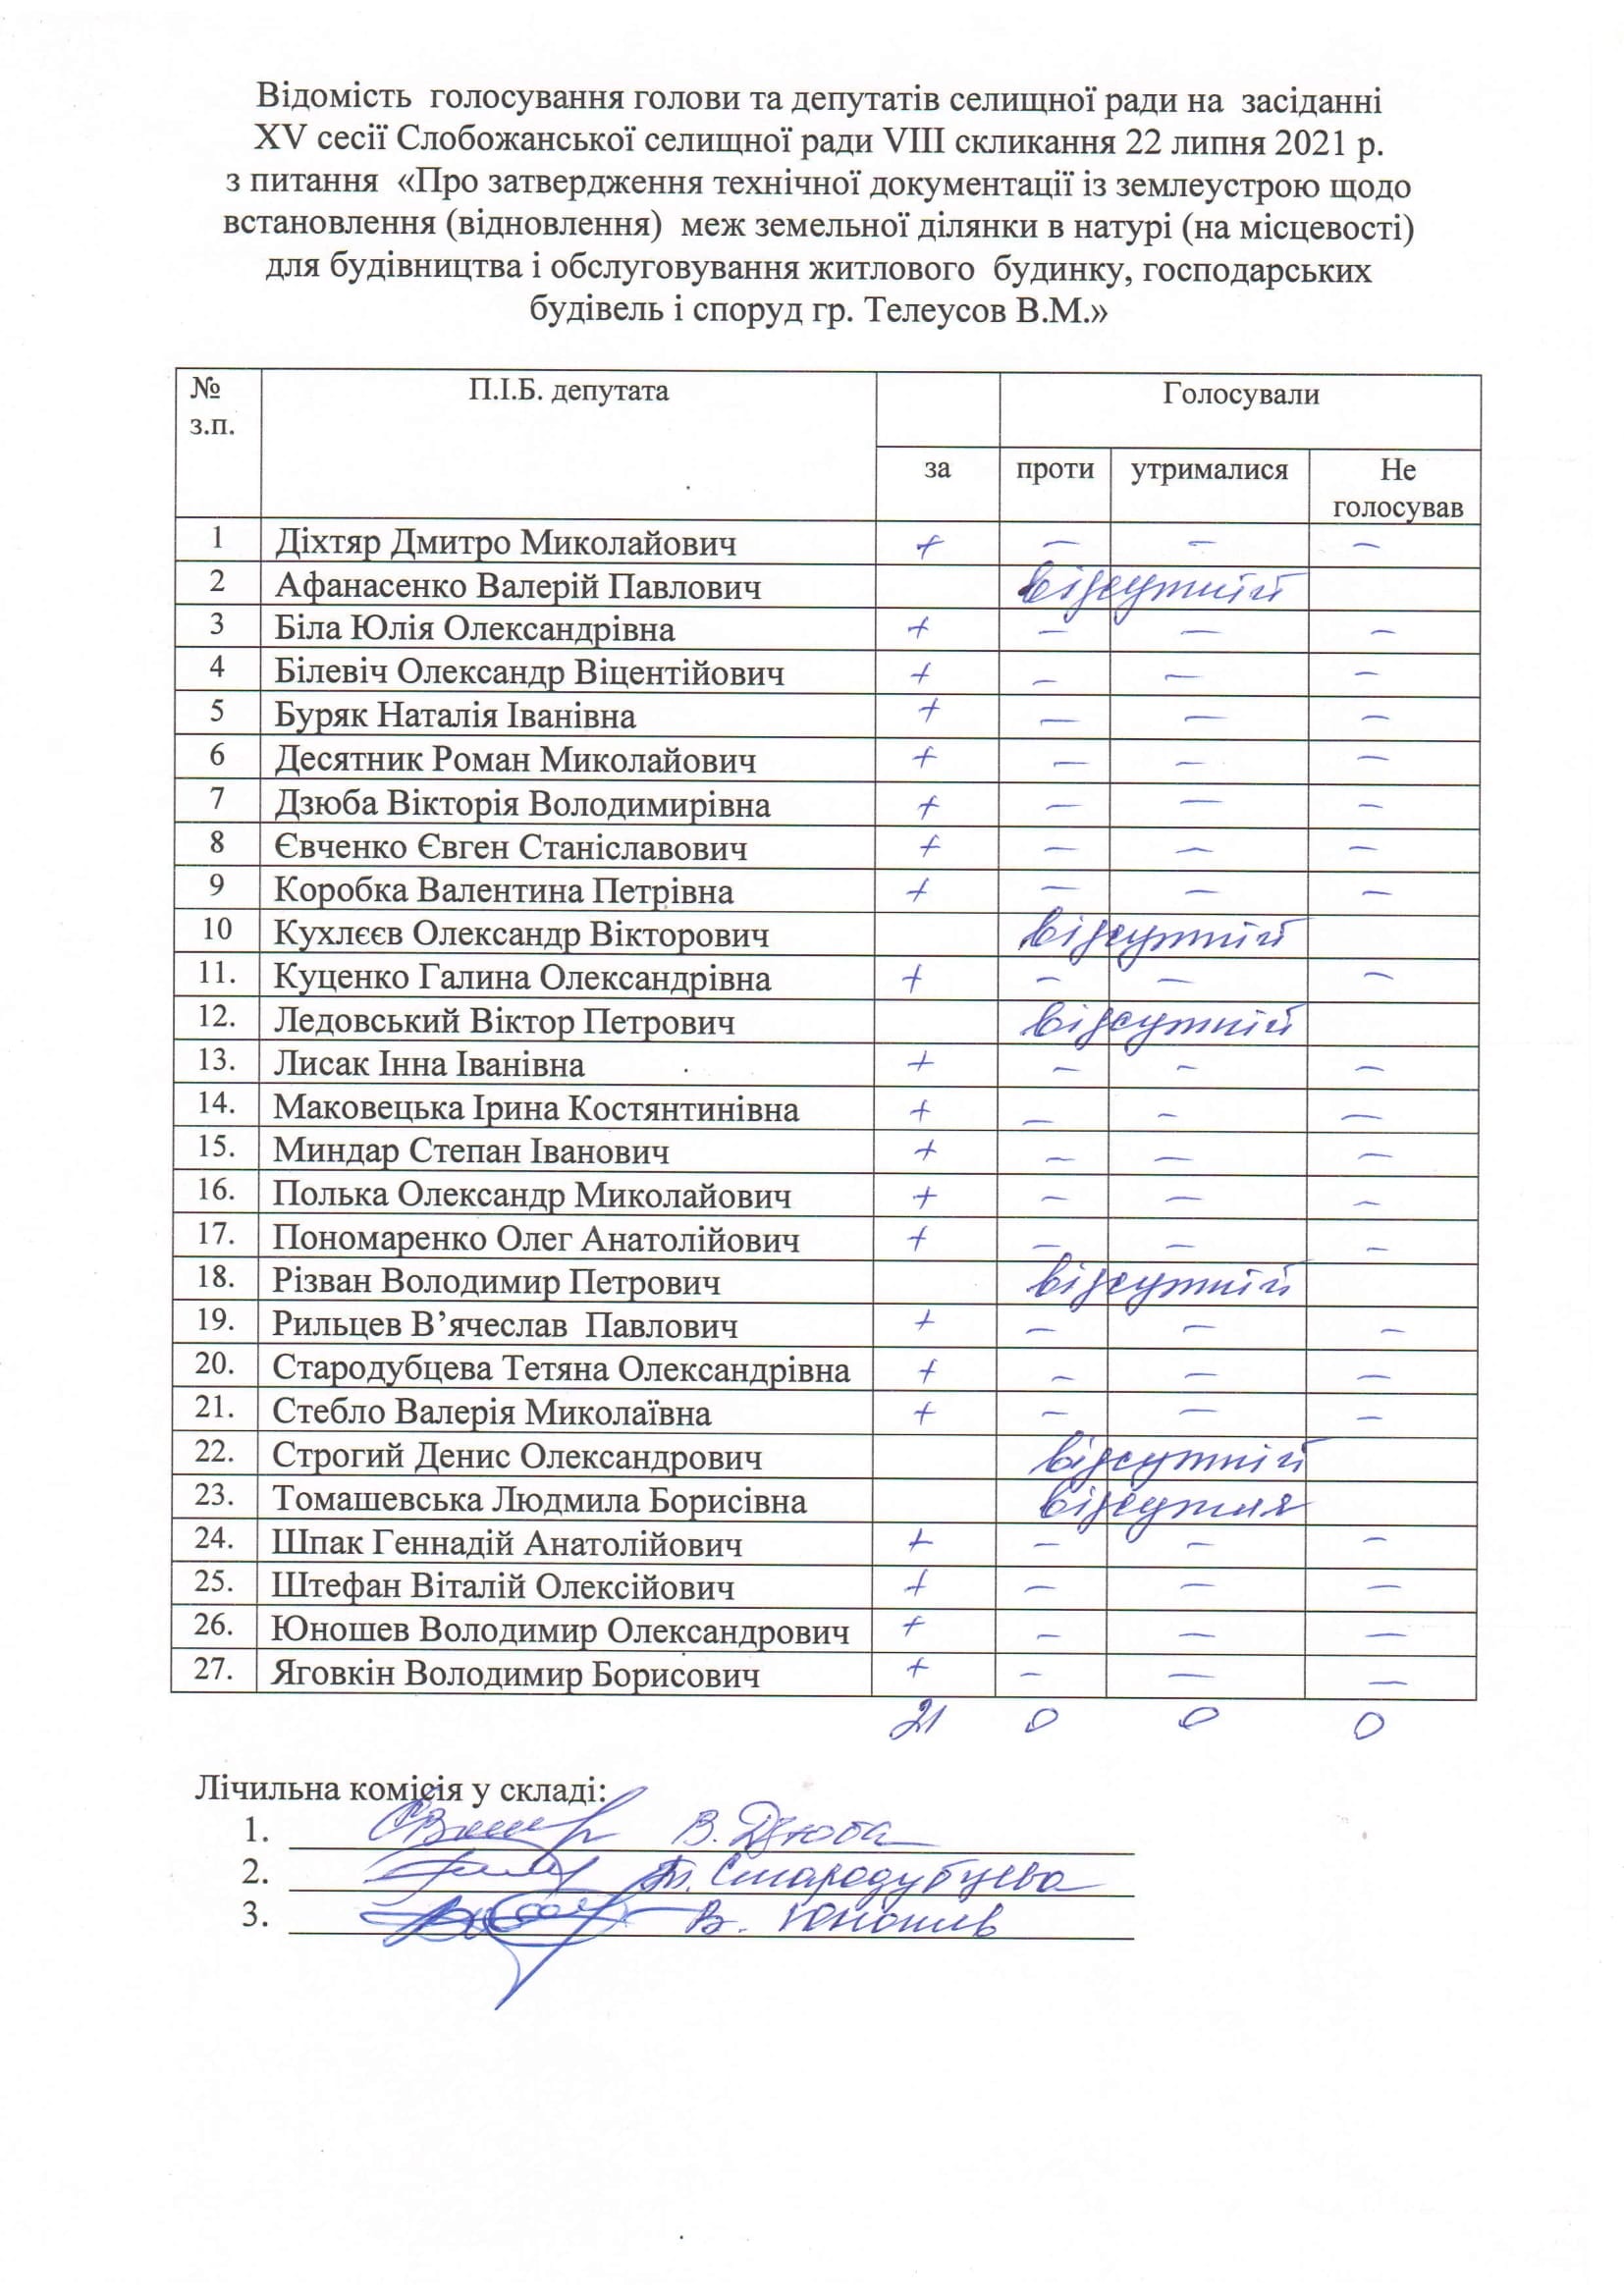 Відомість голосування голови та депутатів селищної ради на засіданні
XV сесії Слобожанської селищної ради VIII скликання 22 липня 2021 р.
з питання «Про затвердження технічної документації із землеустрою щодо
встановлення (відновлення) меж земельної ділянки в натурі (на місцевості)
для будівництва і обслуговування житлового будинку, господарських
будівель і споруд гр. Телеусов В.М.»
№ з.п. П.І.Б. депутата Голосували
за проти утрималися Не голосував
1 Діхтяр Дмитро Миколайович + – – –
2 Афанасенко Валерій Павлович відсутній
3 Біла Юлія Олександрівна + – – –
4 Білевіч Олександр Віцентійович + – – –
5 Буряк Наталія Іванівна + – – –
6 Десятник Роман Миколайович + – – –
7 Дзюба Вікторія Володимирівна + – – –
8 Євченко Євген Станіславович + – – –
9 Коробка Валентина Петрівна + – – –
10 Кухлєєв Олександр Вікторович відсутній
11. Куценко Галина Олександрівна + – – –
12. Ледовський Віктор Петрович відсутній
13. Лисак Інна Іванівна + – – –
14. Маковецька Ірина Костянтинівна + – – –
15. Миндар Степан Іванович + – – –
16. Полька Олександр Миколайович + – – –
17. Пономаренко Олег Анатолійович + – – –
18. Різван Володимир Петрович відсутній
19. Рильцев В’ячеслав Павлович + – – –
20. Стародубцева Тетяна Олександрівна + – – –
21. Стебло Валерія Миколаївна + – – –
22. Строгий Денис Олександрович відсутній
23. Томашевська Людмила Борисівна відсутня
24. Шпак Геннадій Анатолійович + – – –
25. Штефан Віталій Олексійович + – – –
26. Юношев Володимир Олександрович + – – –
27. Яговкін Володимир Борисович + – – –
21 0 0 0
Лічильна комісія у складі:
1. В. Дзюба
2. Т. Стародубцева
3. В. Юношев